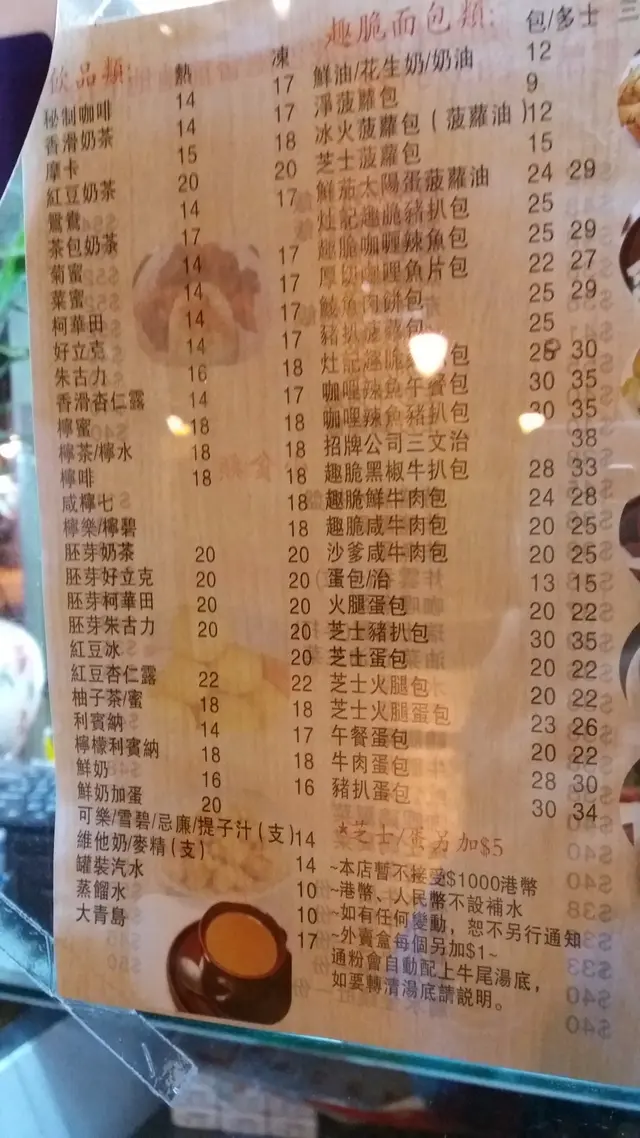 飲品類: 熱 凍
秘制咖啡 14 17
香滑奶茶 14 17
摩卡 15 18
紅豆奶茶 20 20
鴛鴦 14 17
茶包奶茶 17
菊蜜 14 17
菜蜜 14 17
柯華田 14 17
好立克 14 17
朱古力 16 18
香滑杏仁露 14 17
檸蜜 18 18
檸茶/檸水 18 18
檸啡 18 18
咸檸七 18
檸樂/檸碧 18
胚芽奶茶 20 20
胚芽好立克 20 20
胚芽柯華田 20 20
胚芽朱古力 20 20
紅豆冰 20
紅豆杏仁露 22 22
柚子茶/蜜 18 18
利賓納 14 17
檸檬利賓納 18 18
鮮奶 16 16
鮮奶加蛋 20
可樂/雪碧/忌廉/提子汁(支) 14
維他奶/麥精(支) 14
罐裝汽水 10
蒸餾水 10
大青島 17
趣脆面包類: 包/多士
鮮油/花生奶/奶油 12
淨菠蘿包 9
冰火菠蘿包(菠蘿油) 12
芝士菠蘿包 15
鮮茄太陽蛋菠蘿油 24 29
灶記趣脆豬扒包 25
趣脆咖喱辣魚包 25 29
厚切咖哩魚片包 22 27
鯪魚肉餅包 25 29
豬扒菠蘿包 25
灶記趣脆 包 25 30
咖哩辣魚午餐包 30 35
咖哩辣魚豬扒包 30 35
招牌公司三文治 38
趣脆黑椒牛扒包 28 33
趣脆鮮牛肉包 24 28
趣脆咸牛肉包 20 25
沙爹咸牛肉包 20 25
蛋包/治 13 15
火腿蛋包 20 22
芝士豬扒包 30 35
芝士蛋包 20 22
芝士火腿包 20 22
芝士火腿蛋包 23 26
午餐蛋包 20 22
牛肉蛋包 28 30
豬扒蛋包 30 34
*芝士/蛋另加$5
~本店暫不接受$1000港幣
~港幣、人民幣不設補水
~如有任何變動，恕不另行通知
~外賣盒每個另加$1~
通粉會自動配上牛尾湯底，
如要轉清湯底請說明。